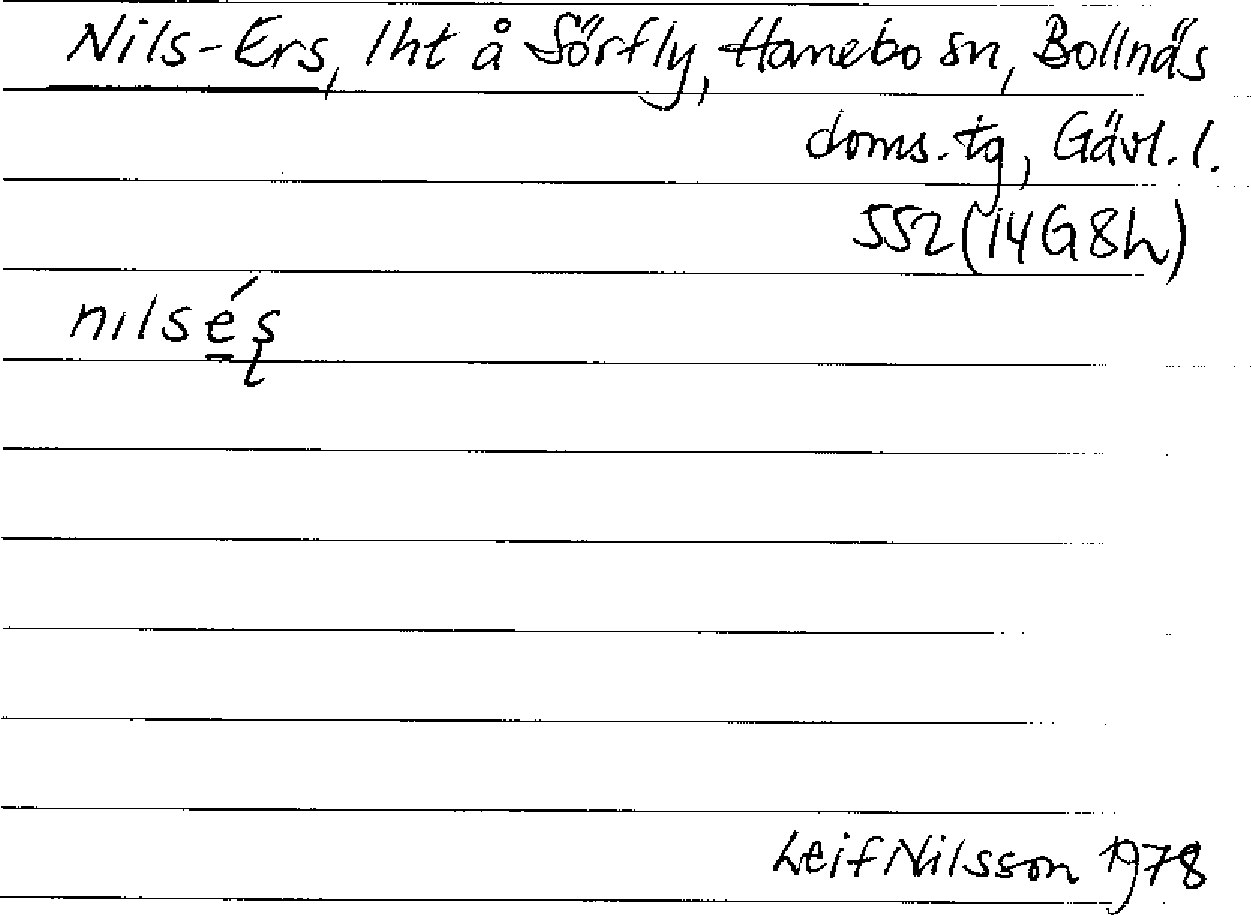 Nils-Ers, lht å Sörfly, Hanebo sn, Bollnäs
doms. tg, Gävl. l.
552 (14G8h)
nilsé̲ʂ
Leif Nilsson 1978